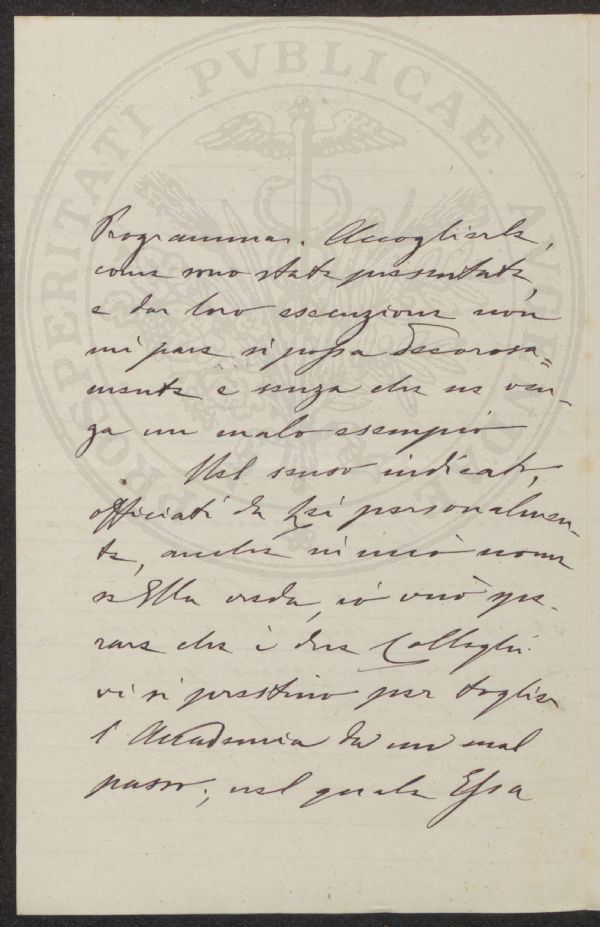 PROSPERITATI PVBLICAE AVGENDAE
Programma. Accoglierle,
come sono state presentate,
e dar loro esecuzione non
mi pare si possa decorosa=
mente e senza che ne ven-
ga un malo esempio
Nel senso indicato,
officiati da Lei personalmen-
te, anche in mio nome
se Ella creda, io vuò spe-
rare che i due Colleghi
vi si prestino per toglier
l'Accademia da un mal
passo, nel quale Essa